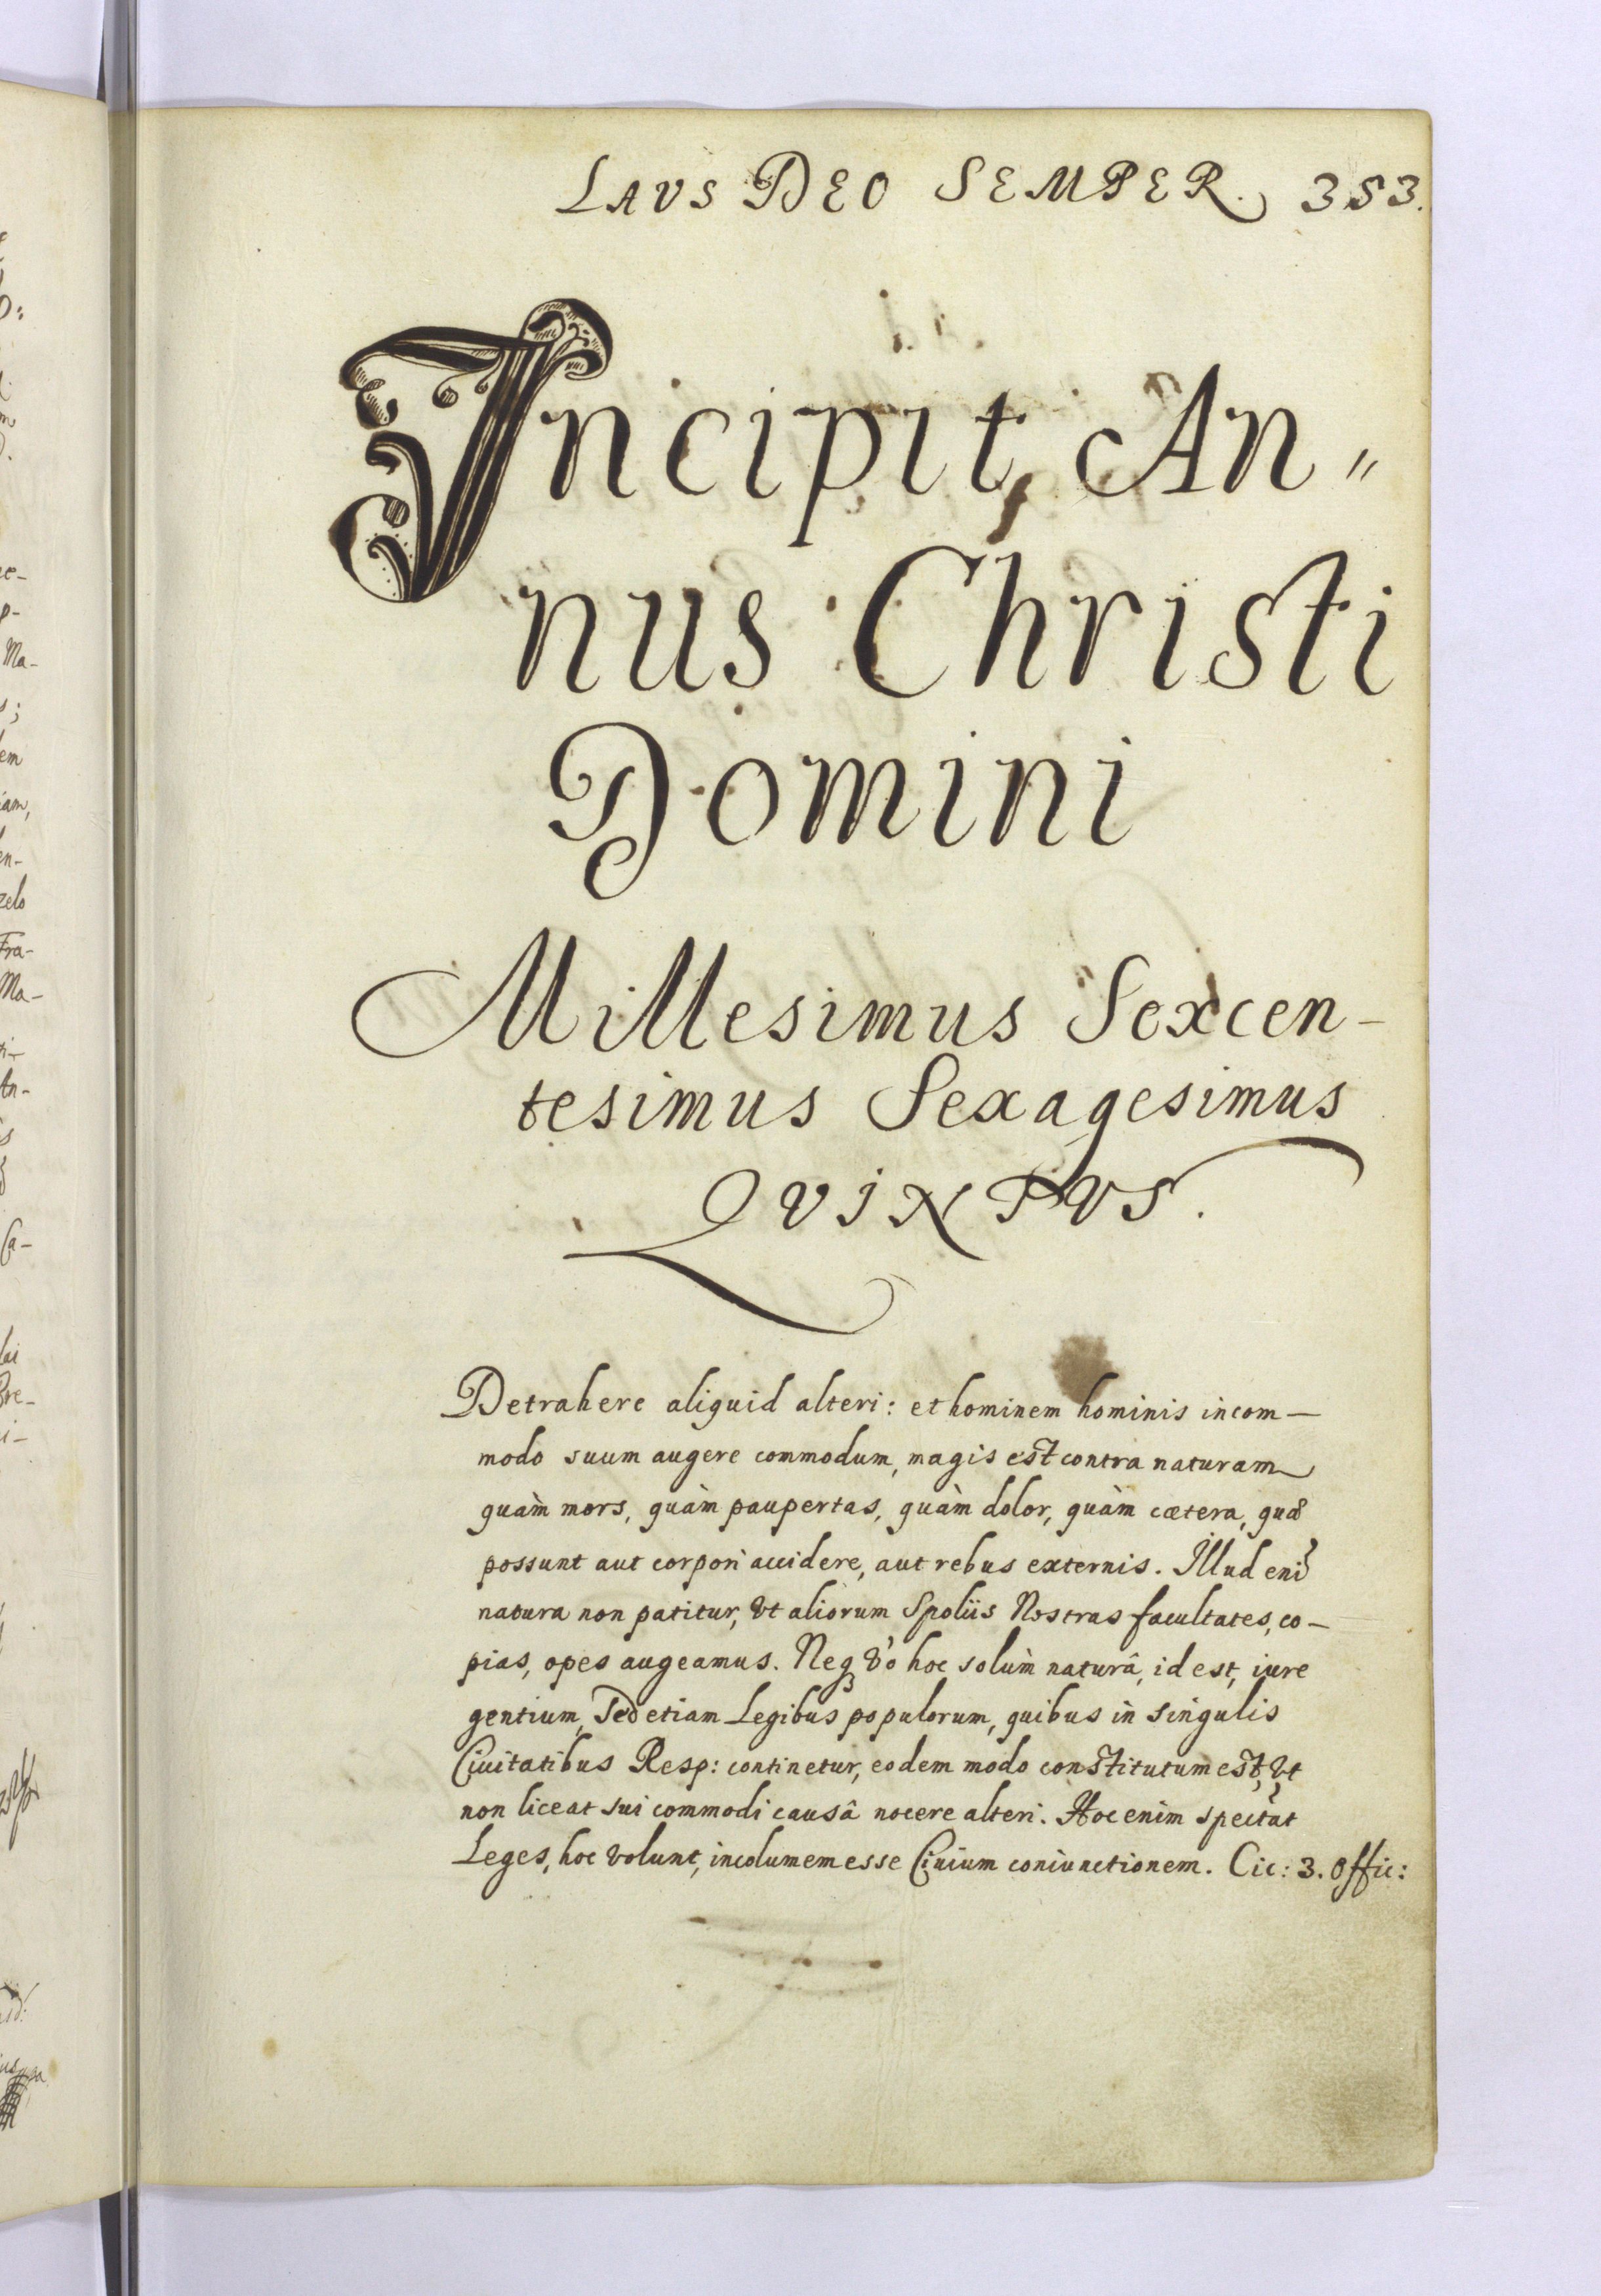 LAVS DEO SEMPER. 353.
Incipit An〃
nus Christi
Domini
Millesimus Sexcen-
tesimus Sexagesimus
QVINTVS.
Detrahere aliquid alteri: et hominem hominis incom-
modo suum augere commodum, magis est contra naturam
quàm mors, quàm paupertas, quàm dolor, quàm cætera, quæ
possunt aut corpori accidere, aut rebus externis. Illud eni̅
natura non patitur, vt aliorum Spoliis Nostras facultates, co-
pias, opes augeamus. Neqꝫ v̓o hoc solùm naturâ, id est, iure
gentium, Sed etiam Legibus populorum, quibus in singulis
Ciuitatibus Resp: continetur, eodem modo constitutum est, vt
non liceat sui commodi causâ nocere alteri. Hoc enim specta̅t
Leges, hoc volunt, incolumem esse Ciuium coniunctionem. Cic: 3. Offic: